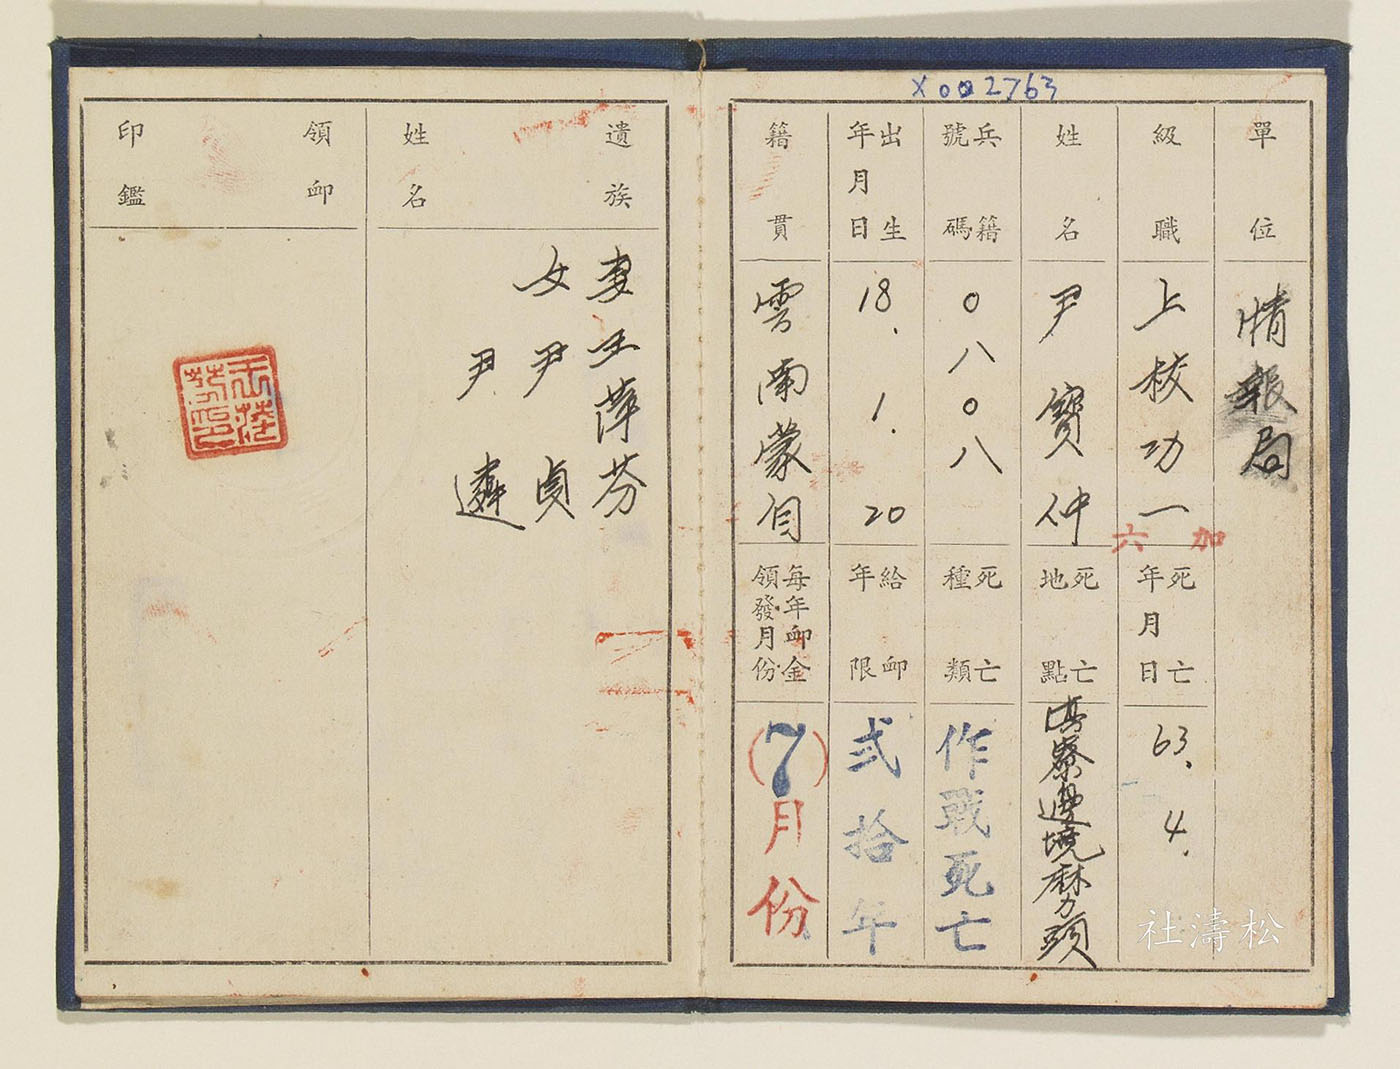 X002763
單位
情報局
級職
上校功一
加六
死亡年月日
63.4.
姓名
尹寶仲
死亡地點
滇寮邊境麻力頭
兵籍號碼
0八0八
死亡種類
作戰死亡
出生年月日
18.1.20
給卹年限
貳拾年
籍貫
雲南蒙自
每年卹金領發月份
(7)月份
遺族姓名
妻王萍芬
女尹貞
尹
領卹印鑑
松濤社